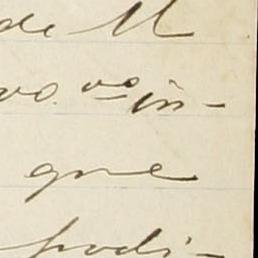 de M
vo. vo in-
que
podi-